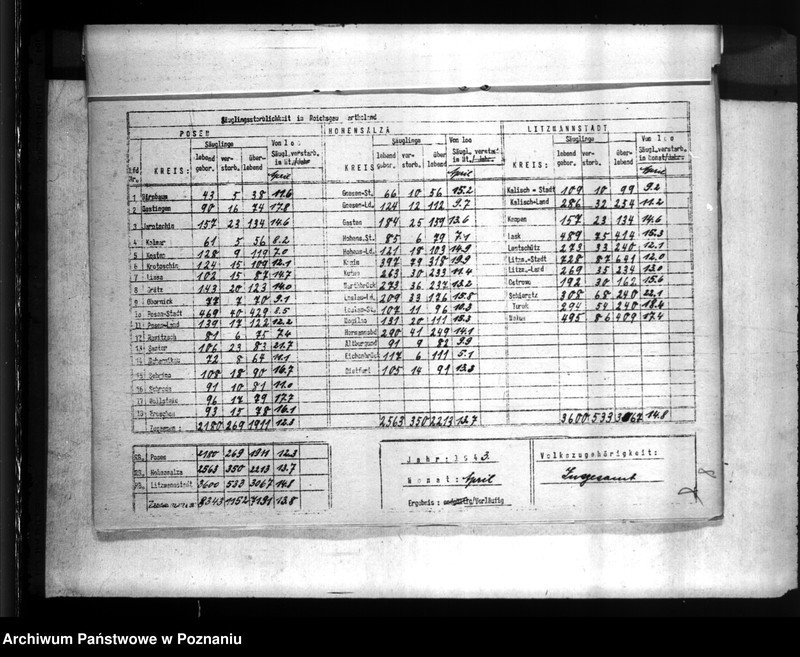 Säuglingssterblichkeit im Reichsgau
POSEN HOHENSALZA LITZMANNSTADT
Säuglinge Von 100 Säuglinge Von 100 Säuglinge Von 100
Lfd. Nr. KREIS: lebend gebor. ver- storb. über- lebend April
KREIS lebend gebor. ver- storb. über lebend April
KREIS: lebend gebor. ver- storb. über- lebend April
1 43 5 38 11.6 Gnesen-St. 66 10 56 15.2 Kalisch-Stadt 109 10 99 9.2
2 Gostingen 90 16 74 17.8 Gnesen-Ld. 124 12 112 9.7 Kalisch-Land 286 32 254 11.2
3 Jarotschin 157 23 134 14.6 184 25 159 13.6 Kempen 157 23 134 14.6
4 Kolmar 61 5 56 8.2 Hohens.St. 85 6 79 7.1 Lask 489 75 414 15.3
5 Kosten 128 9 119 7.0 Hohens-Ld. 121 18 103 14.9 Lentschütz 273 33 240 12.1
6 Krotoschin 124 15 109 12.1 Konin 397 79 318 19.9 Litzm.-Stadt 728 87 641 12.0
7 Lissa 102 15 87 14.7 Kutno 263 30 233 11.4 Litzm.-Land 269 35 234 13.0
8 Grätz 143 20 123 14.0 273 36 237 13.2 Ostrowo 192 30 162 15.6
9 Obornick 77 7 70 9.1 Leslau-Ld. 209 33 176 15.8 Schieratz 308 68 240 22.1
10 Posen-Stadt 469 40 429 8.5 Leslau-St. 107 11 96 10.3 Turek 294 54 240 18.4
11 Posen-Land 139 17 122 12.2 131 20 111 15.3 495 86 409 17.4
12 Rawitsch 81 6 75 7.4 290 41 249 14.1
13 Samter 106 23 83 21.7 Altburgund 91 9 82 9.9
14 72 8 64 11.1 Eichenbrück 117 6 111 5.1
15 Schrimm 108 18 90 16.7 Dietfurt 105 14 91 13.3
16 Schroda 91 10 81 11.0
17 Wollstein 96 17 79 17.7
18 Wreschen 93 15 78 16.1
Zusammen: 2180 269 1911 12.3 2563 350 2213 13.7 3600 533 3067 14.8
Posen 2180 269 1911 12.3
Hohensalza 2563 350 2213 13.7
Litzmannstadt 3600 533 3067 14.8
Zusammen 8343 1152 7191 13.8
Jahr: 1943
Monat: April
Ergebnis: endgültig/Vorläufig
Volkszugehörigkeit:
Insgesamt
Archiwum Państwowe w Poznaniu